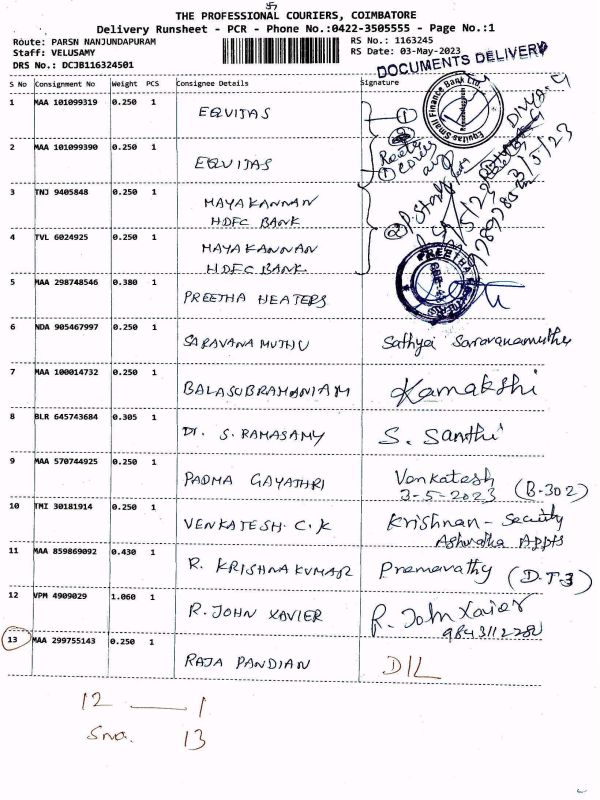 THE PROFESSIONAL COURIERS, COIMBATORE
Delivery Runsheet - PCR - Phone No.:0422-3505555 - Page No.:1
Route: PARSN NANJUNDAPURAM
RS No.: 1163245
Staff: VELUSAMY
RS Date: 03-May-2023
DRS No.: DCJB116324501
DOCUMENTS DELIVERY
S No Consignment No Weight PCS Consignee Details Signature
1 MAA 101099319 0.250 1 EQUITAS
Equitas Small Finance Bank Ltd.
2 MAA 101099390 0.250 1 EQUITAS
3 TNJ 9405848 0.250 1 MAYAKANNAN
HDFC BANK
4 TVL 6024925 0.250 1 MAYAKANNAN
HDFC BANK
5 MAA 298748546 0.380 1 PREETHA HEATERS
6 NDA 905467997 0.250 1 SARAVANA MUTHU Sathya Saravanamuthu
7 MAA 100014732 0.250 1 BALASUBRAMANIAM Kamakshi
8 BLR 645743684 0.305 1 DT. S. RAMASAMY S. Santhi
9 MAA 570744925 0.250 1 PADMA GAYATHRI Venkatesh
3-5-2023 (B-302)
10 TMI 30181914 0.250 1 VENKATESH C.K Krishnan - Security
11 MAA 859869092 0.430 1 R. KRISHNA KUMAR Premavathy (D.T-3)
12 VPM 4909029 1.060 1 R. JOHN XAVIER R. John Xavier
13 MAA 299755143 0.250 1 RAJA PANDIAN D/L
12 — 1
Sno. 13